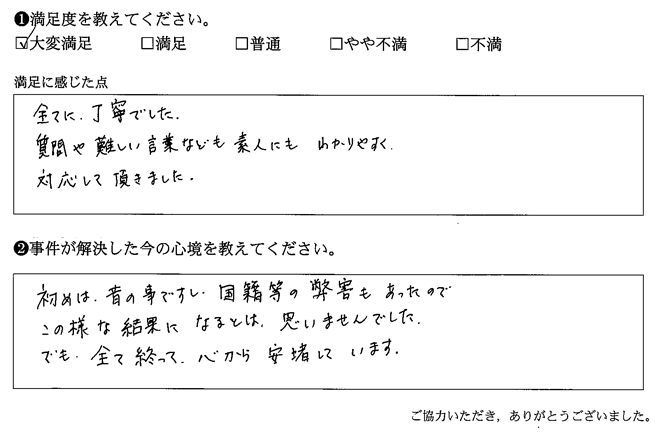 ❶満足度を教えてください。
☑大変満足 □満足 □普通 □やや不満 □不満
満足に感じた点
全てに、丁寧でした。
質問や難しい言葉なども素人にも わかりやすく、
対応して頂きました。
❷事件が解決した今の心境を教えてください。
初めは、昔の事ですし、国籍等の弊害もあったので
この様な結果になるとは、思いませんでした。
でも、全て終って、心から安堵して います。
ご協力いただき，ありがとうございました。